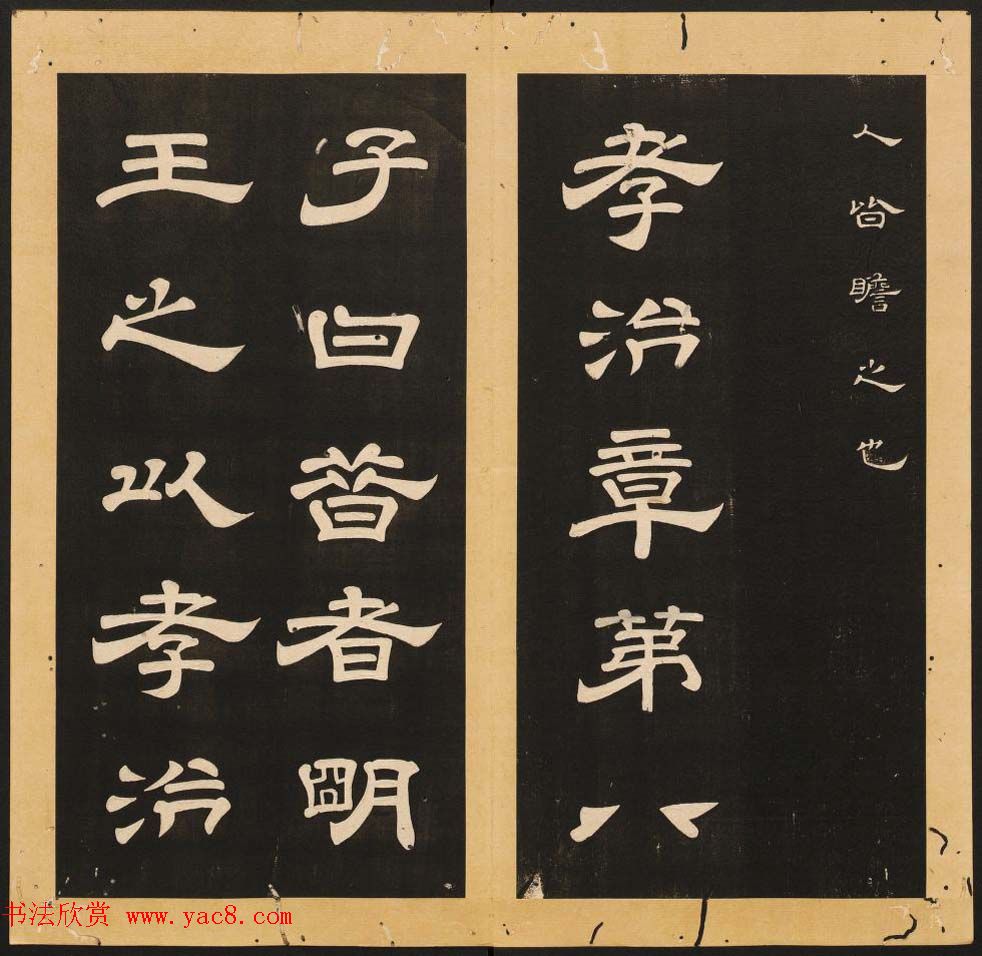 人皆瞻之也
孝治章苐八
子曰昔者明
王之以孝治
书法欣赏 www.yac8.com